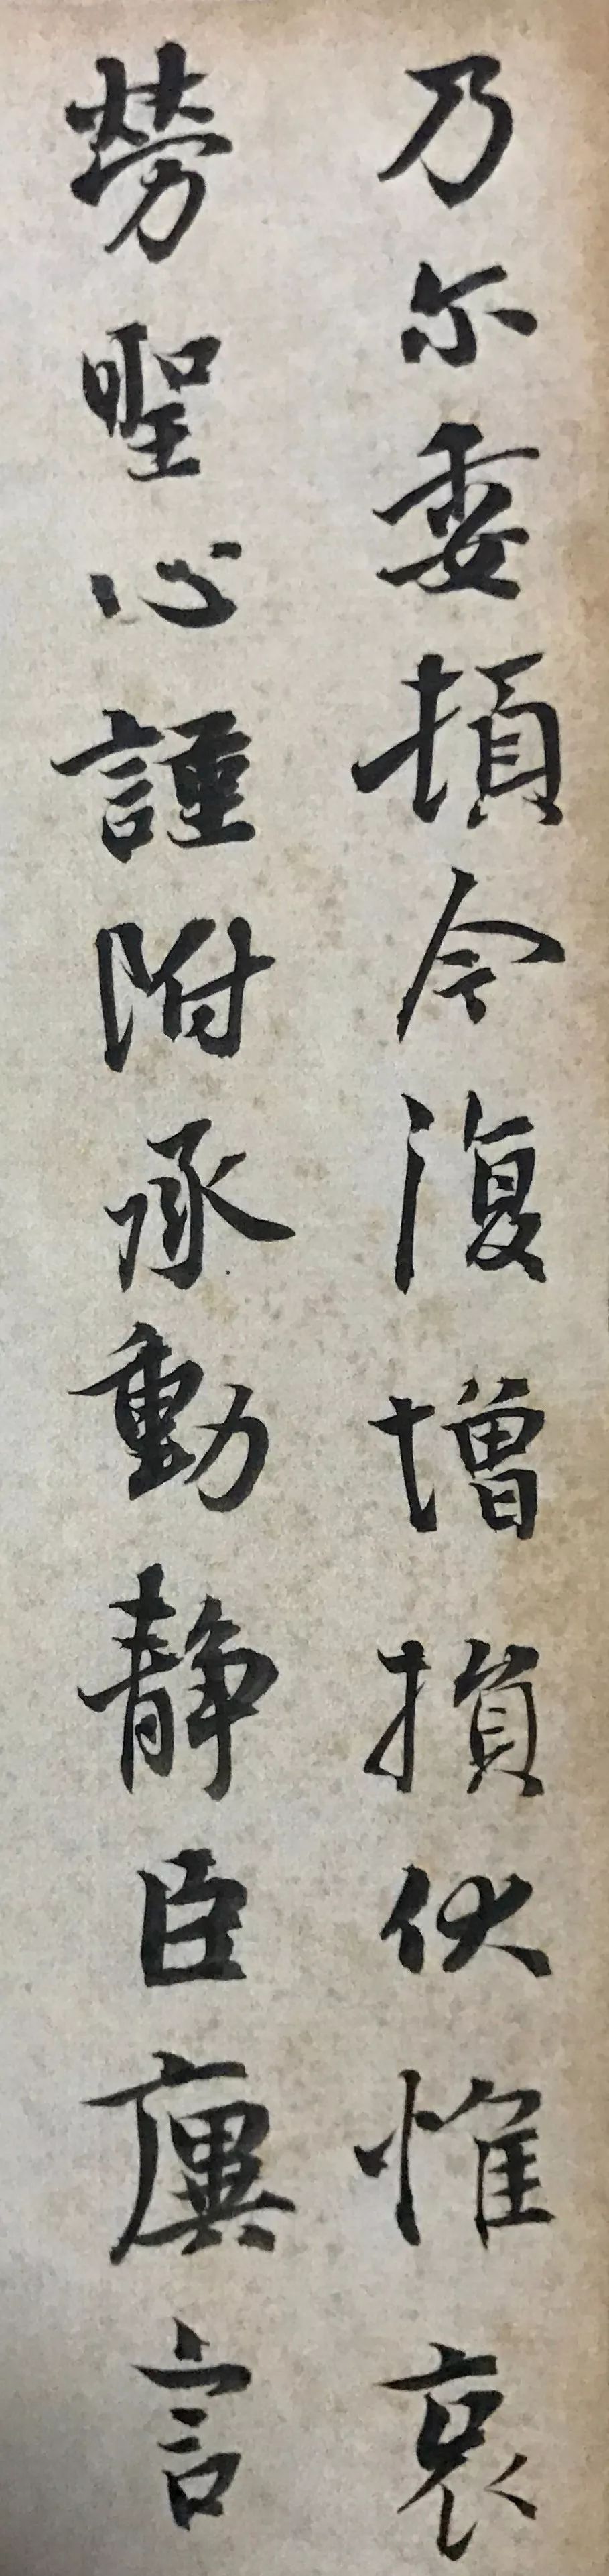 乃尓委頓今復增損伏惟哀
勞聖心謹附承動静臣廙言